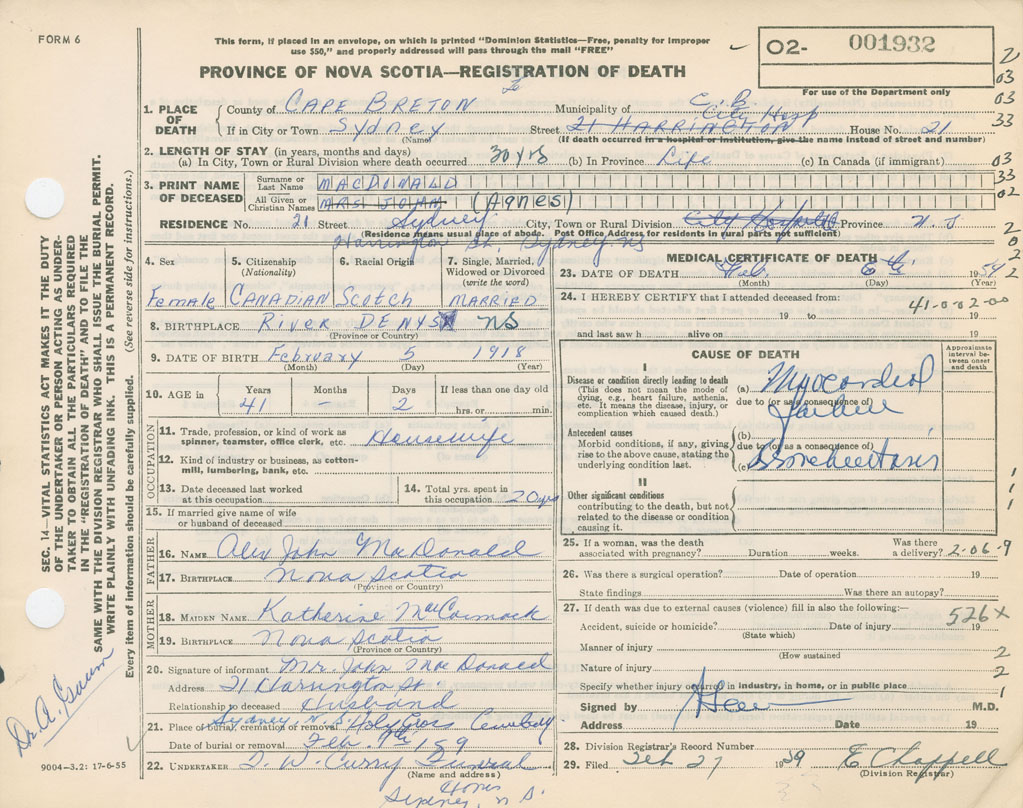 FORM 6
This form, if placed in an envelope, on which is printed "Dominion Statistics—Free, penalty for improper
use $50," and properly addressed will pass through the mail "FREE"
PROVINCE OF NOVA SCOTIA—REGISTRATION OF DEATH
02- 001932
For use of the Department only
1. PLACE OF DEATH
County of CAPE BRETON Municipality of C. B.
City Hosp
If in City or Town Sydney Street 21 HARRINGTON House No. 21
(Name) (If death occurred in a hospital or institution, give the name instead of street and number)
2. LENGTH OF STAY (in years, months and days)
(a) In City, Town or Rural Division where death occurred 30 yrs (b) In Province Life (c) In Canada (if immigrant)
3. PRINT NAME OF DECEASED
Surname or Last Name MACDONALD
All Given or Christian Names MRS JOHN (Agnes)
RESIDENCE No. 21 Street Sydney City, Town or Rural Division City Hospital Province N. S
(Residence means usual place of abode. Post Office Address for residents in rural parts not sufficient)
Harrington St, Sydney NS
4. Sex 5. Citizenship 6. Racial Origin 7. Single, Married,
(Nationality) Widowed or Divorced
(write the word)
Female CANADIAN SCOTCH MARRIED
8. BIRTHPLACE RIVER DENYS NS
(Province or Country)
9. DATE OF BIRTH February 5 1918
(Month) (Day) (Year)
10. AGE in Years Months Days If less than one day old
41 - 2 hrs. or min.
OCCUPATION
11. Trade, profession, or kind of work as
spinner, teamster, office clerk, etc. Housewife
12. Kind of industry or business, as cotton-
mill, lumbering, bank, etc.
13. Date deceased last worked
at this occupation
14. Total yrs. spent in
this occupation 20 yrs
15. If married give name of wife
or husband of deceased
FATHER
16. NAME Alex John MacDonald
17. BIRTHPLACE Nova Scotia
(Province or Country)
MOTHER
18. MAIDEN NAME Katherine MacCormack
19. BIRTHPLACE Nova Scotia
(Province or Country)
20. Signature of informant Mr. John MacDonald
Address 21 Harrington St.
Relationship to deceased Husband
Sydney N. S.
21. Place of burial, cremation or removal Holy Cross Cemetery
Date of burial or removal Feb. 9th /59
22. UNDERTAKER T. W. Curry Funeral
(Name and address)
Home
Sydney, N. S.
MEDICAL CERTIFICATE OF DEATH
23. DATE OF DEATH Feb. 1959
(Month) (Day) (Year)
24. I HEREBY CERTIFY that I attended deceased from:
41-0-02-00
19 to 19
and last saw h alive on 19
CAUSE OF DEATH
Approximate
interval be-
tween onset
and death
I
Disease or condition directly leading to death
(This does not mean the mode of
dying, e.g., heart failure, asthenia,
etc. It means the disease, injury, or
complication which caused death.)
(a) Myocardial
due to (or as a consequence of)
failure
Antecedent causes
Morbid conditions, if any, giving
rise to the above cause, stating the
underlying condition last.
(b)
due to (or as a consequence of)
(c) Bronchiectasis
II
Other significant conditions
contributing to the death, but not
related to the disease or condition
causing it.
25. If a woman, was the death
associated with pregnancy? Duration weeks. Was there
a delivery? 2-06-9
26. Was there a surgical operation? Date of operation 19
State findings Was there an autopsy?
27. If death was due to external causes (violence) fill in also the following:—
526x
Accident, suicide or homicide? Date of injury 19
(State which)
Manner of injury
(How sustained
Nature of injury
Specify whether injury occurred in industry, in home, or in public place
Signed by M.D.
Address Date 19
28. Division Registrar's Record Number
29. Filed Feb 27 1959 E Chappell
(Division Registrar)
SEC. 14—VITAL STATISTICS ACT MAKES IT THE DUTY
OF THE UNDERTAKER OR PERSON ACTING AS UNDER-
TAKER TO OBTAIN ALL THE PARTICULARS REQUIRED
IN THE "REGISTRATION OF DEATH" AND TO FILE THE
SAME WITH THE DIVISION REGISTRAR WHO SHALL ISSUE THE BURIAL PERMIT.
WRITE PLAINLY WITH UNFADING INK. THIS IS A PERMANENT RECORD.
Every item of information should be carefully supplied. (See reverse side for instructions.)
Dr. A. Gaum
9004-3.2: 17-6-55
2
03
03
33
03
33
02
2
0
2
2
1
1
1
2
2
1